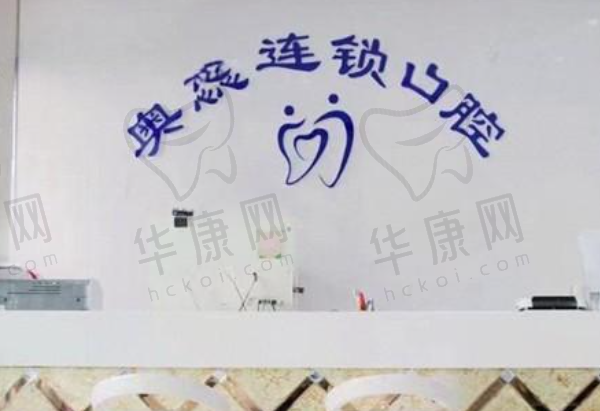 奥 连锁口腔
网 华康网 华康网
hckoi.com hckoi.com